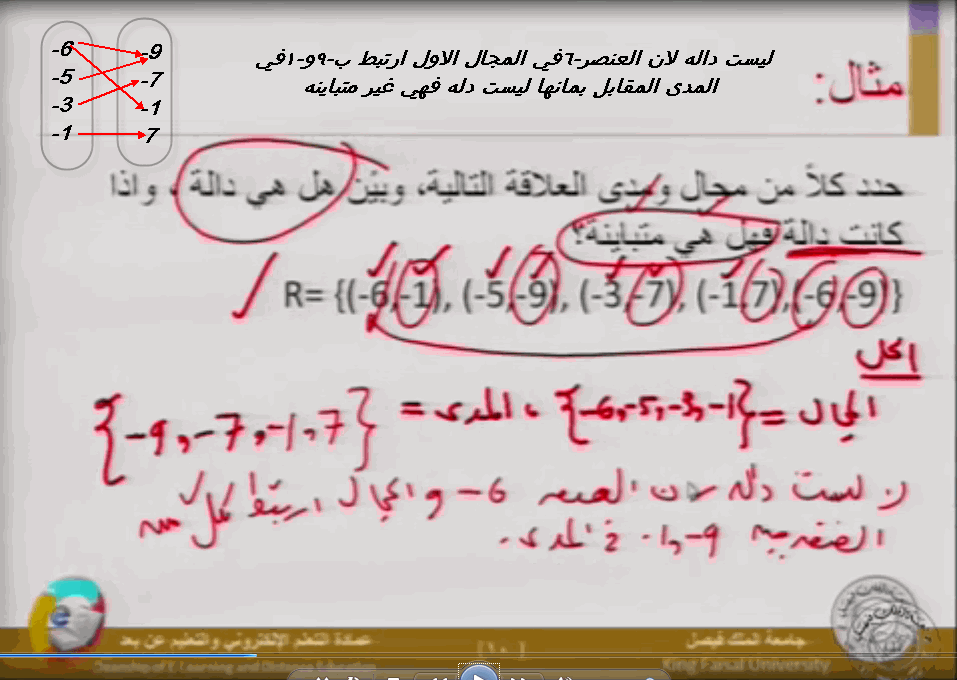 -6
-5
-3
-1
-9
-7
-1
7
ليست داله لان العنصر-٦في المجال الاول ارتبط ب-٩و-١في
المدى المقابل بمانها ليست دله فهي غير متباينه
مثال:
حدد كلاً من مجال ومدى العلاقة التالية، وبيّن هل هي دالة ، واذا
كانت دالة فهل هي متباينة؟
R= {(-6,-1), (-5,-9), (-3,-7), (-1,7), (-6,-9)}
الحل
المجال = {-6,-5,-3,-1} ، المدى =
{-9,-7,-1,7}
ليست دالة لأن العنصر -6 في المجال ارتبط بكل من
العنصرين -9 ,-1 في المدى.
عمادة التعلم الإلكتروني والتعليم عن بعد
Deanship of E-Learning and Distance Education
[١٠]
جامعة الملك فيصل
King Faisal University